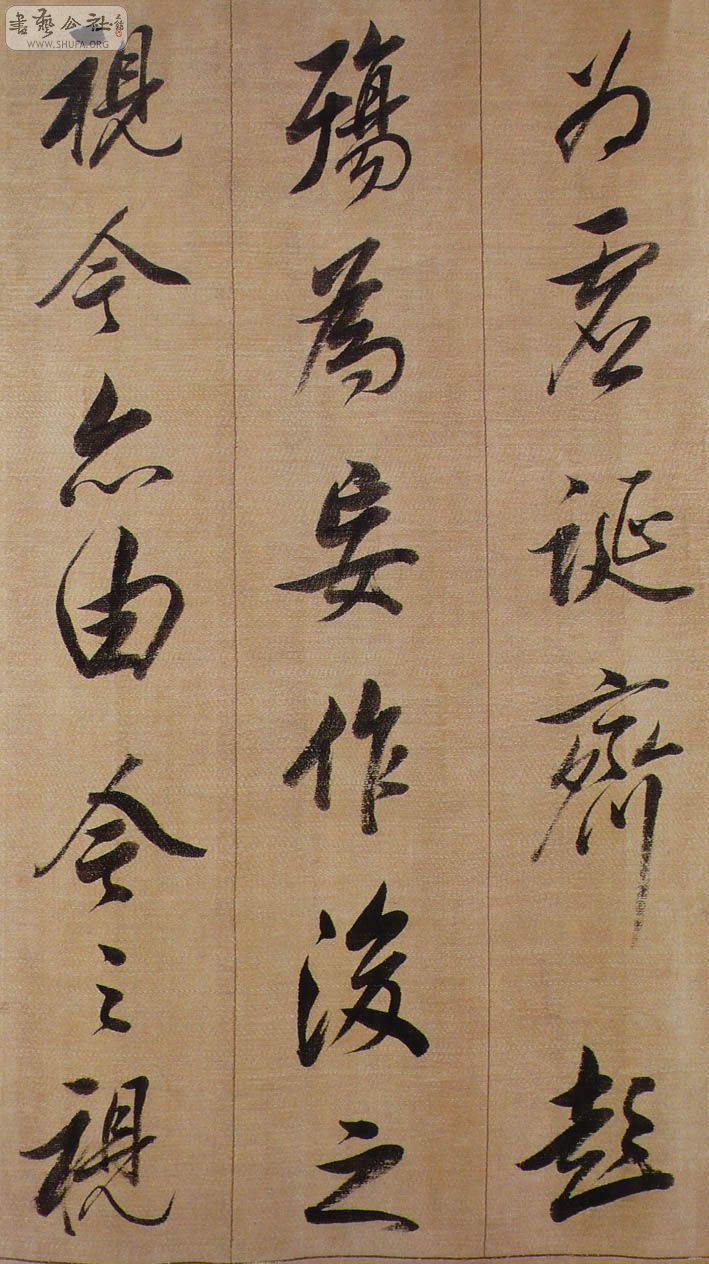 書藝公社
WWW.SHUFA.ORG
为虛誕齊彭
殤為妄作後之
視今亦由今之視